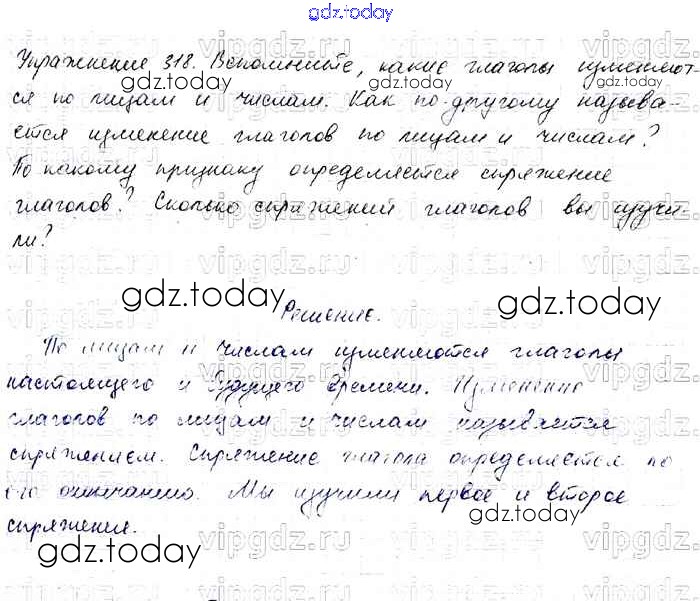 gdz.today
Упражнение 318. Вспомните, какие глаголы изменяют-
ся по лицам и числам. Как по-другому называ-
ется изменение глаголов по лицам и числам?
По какому признаку определяется спряжение
глаголов? Сколько спряжений глаголов вы изучи-
ли?
Решение.
По лицам и числам изменяются глаголы
настоящего и будущего времени. Изменение
глаголов по лицам и числам называется
спряжением. Спряжение глагола определяется по
его окончанию. Мы изучили первое и второе
спряжения.